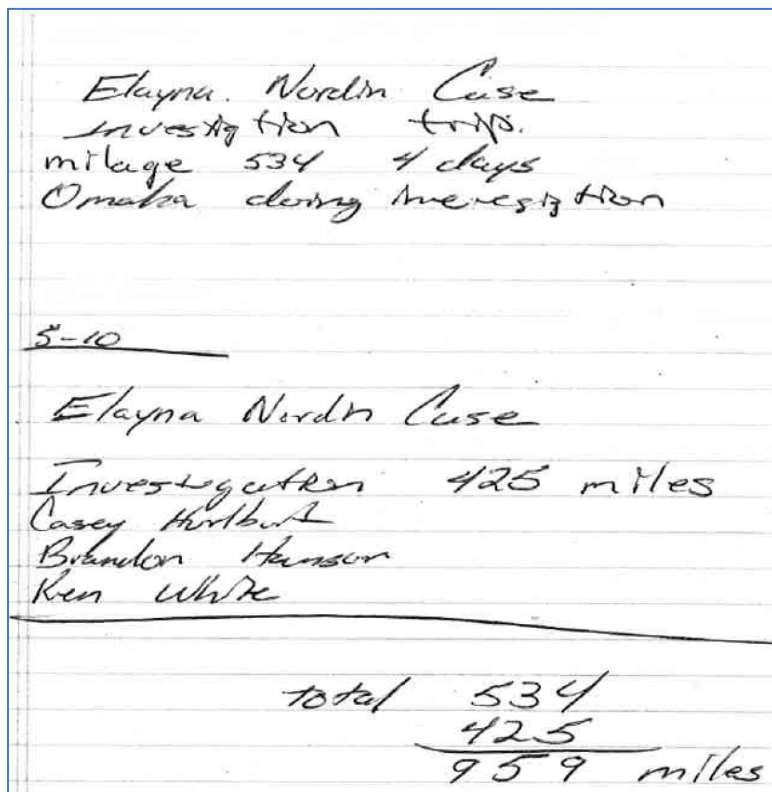 Elayna. Nordin Case
Investigtion trips.
milage 534 4 days
Omaha doing inveresigtion
5-10
Elayna Nordin Case
Investigation 425 miles
Casey Hurlburt
Brandon Hanson
Ken White
total 534
425
959 miles